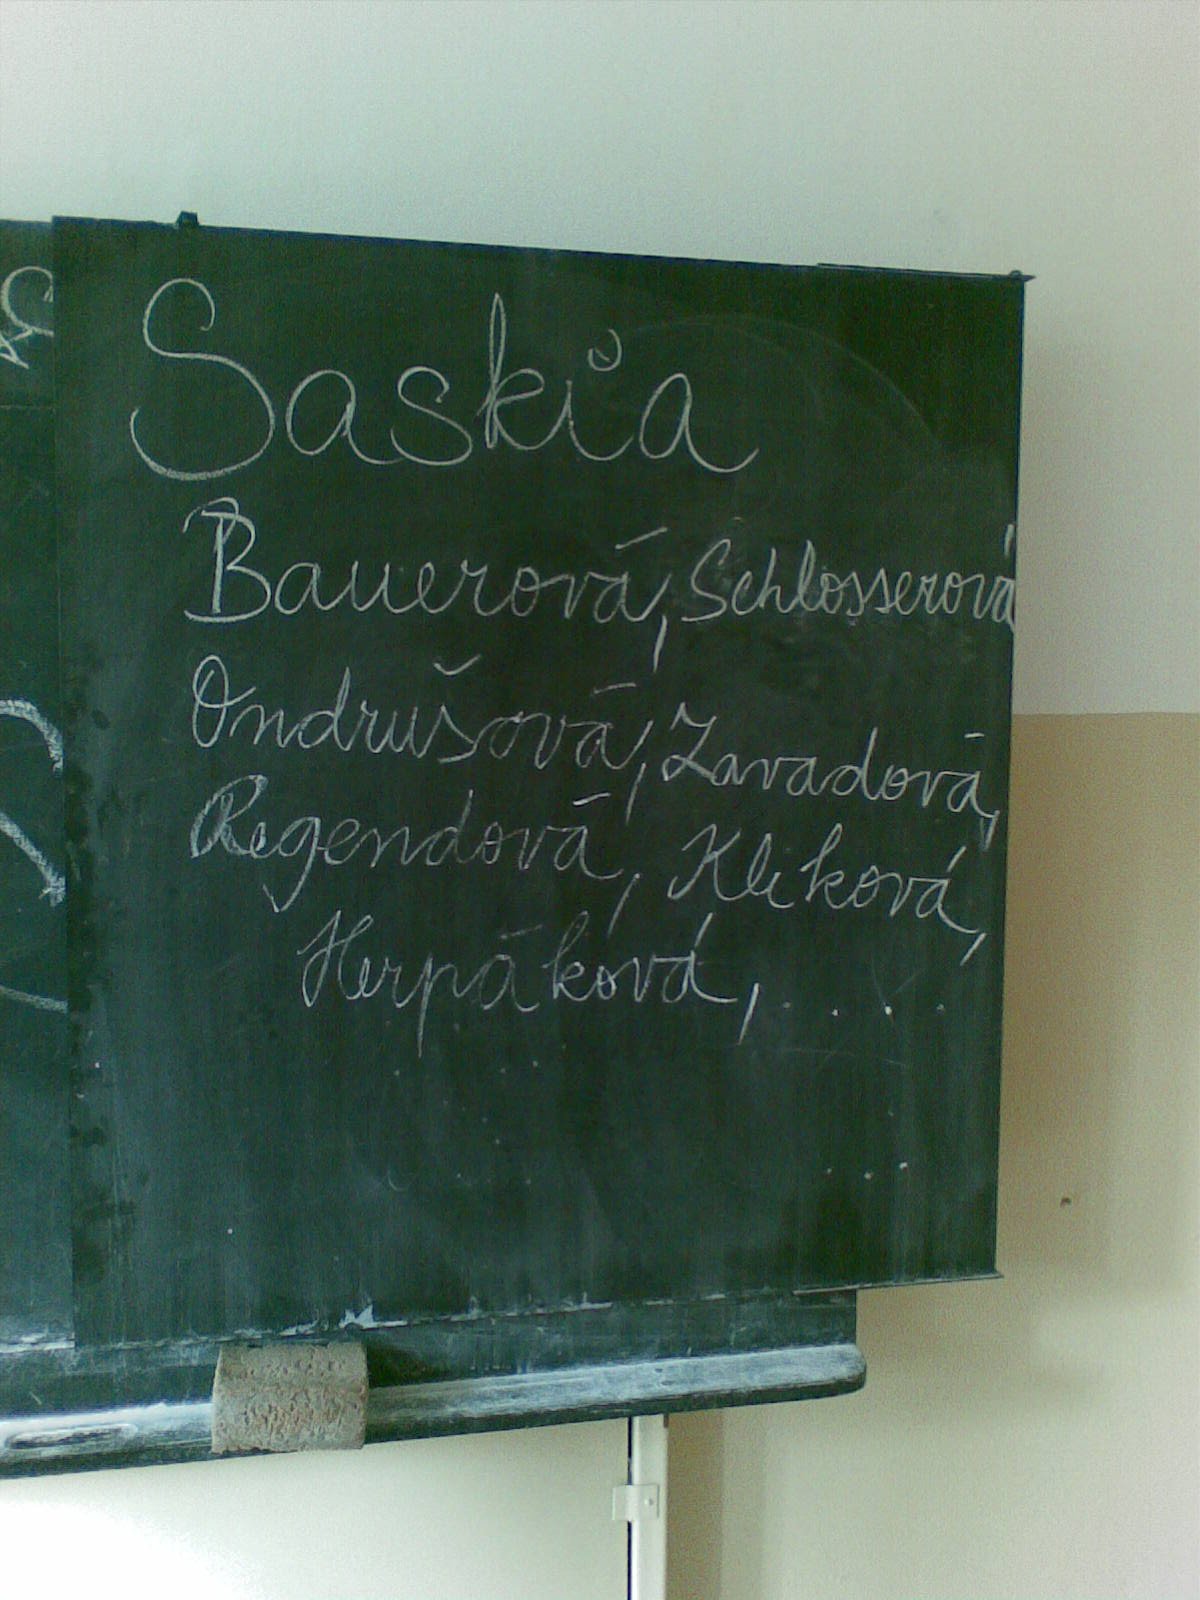 Saskia
Bauerová, Schlosserová
Ondrušová, Zavadová,
Regendová, Kliková,
Herpáková, ....